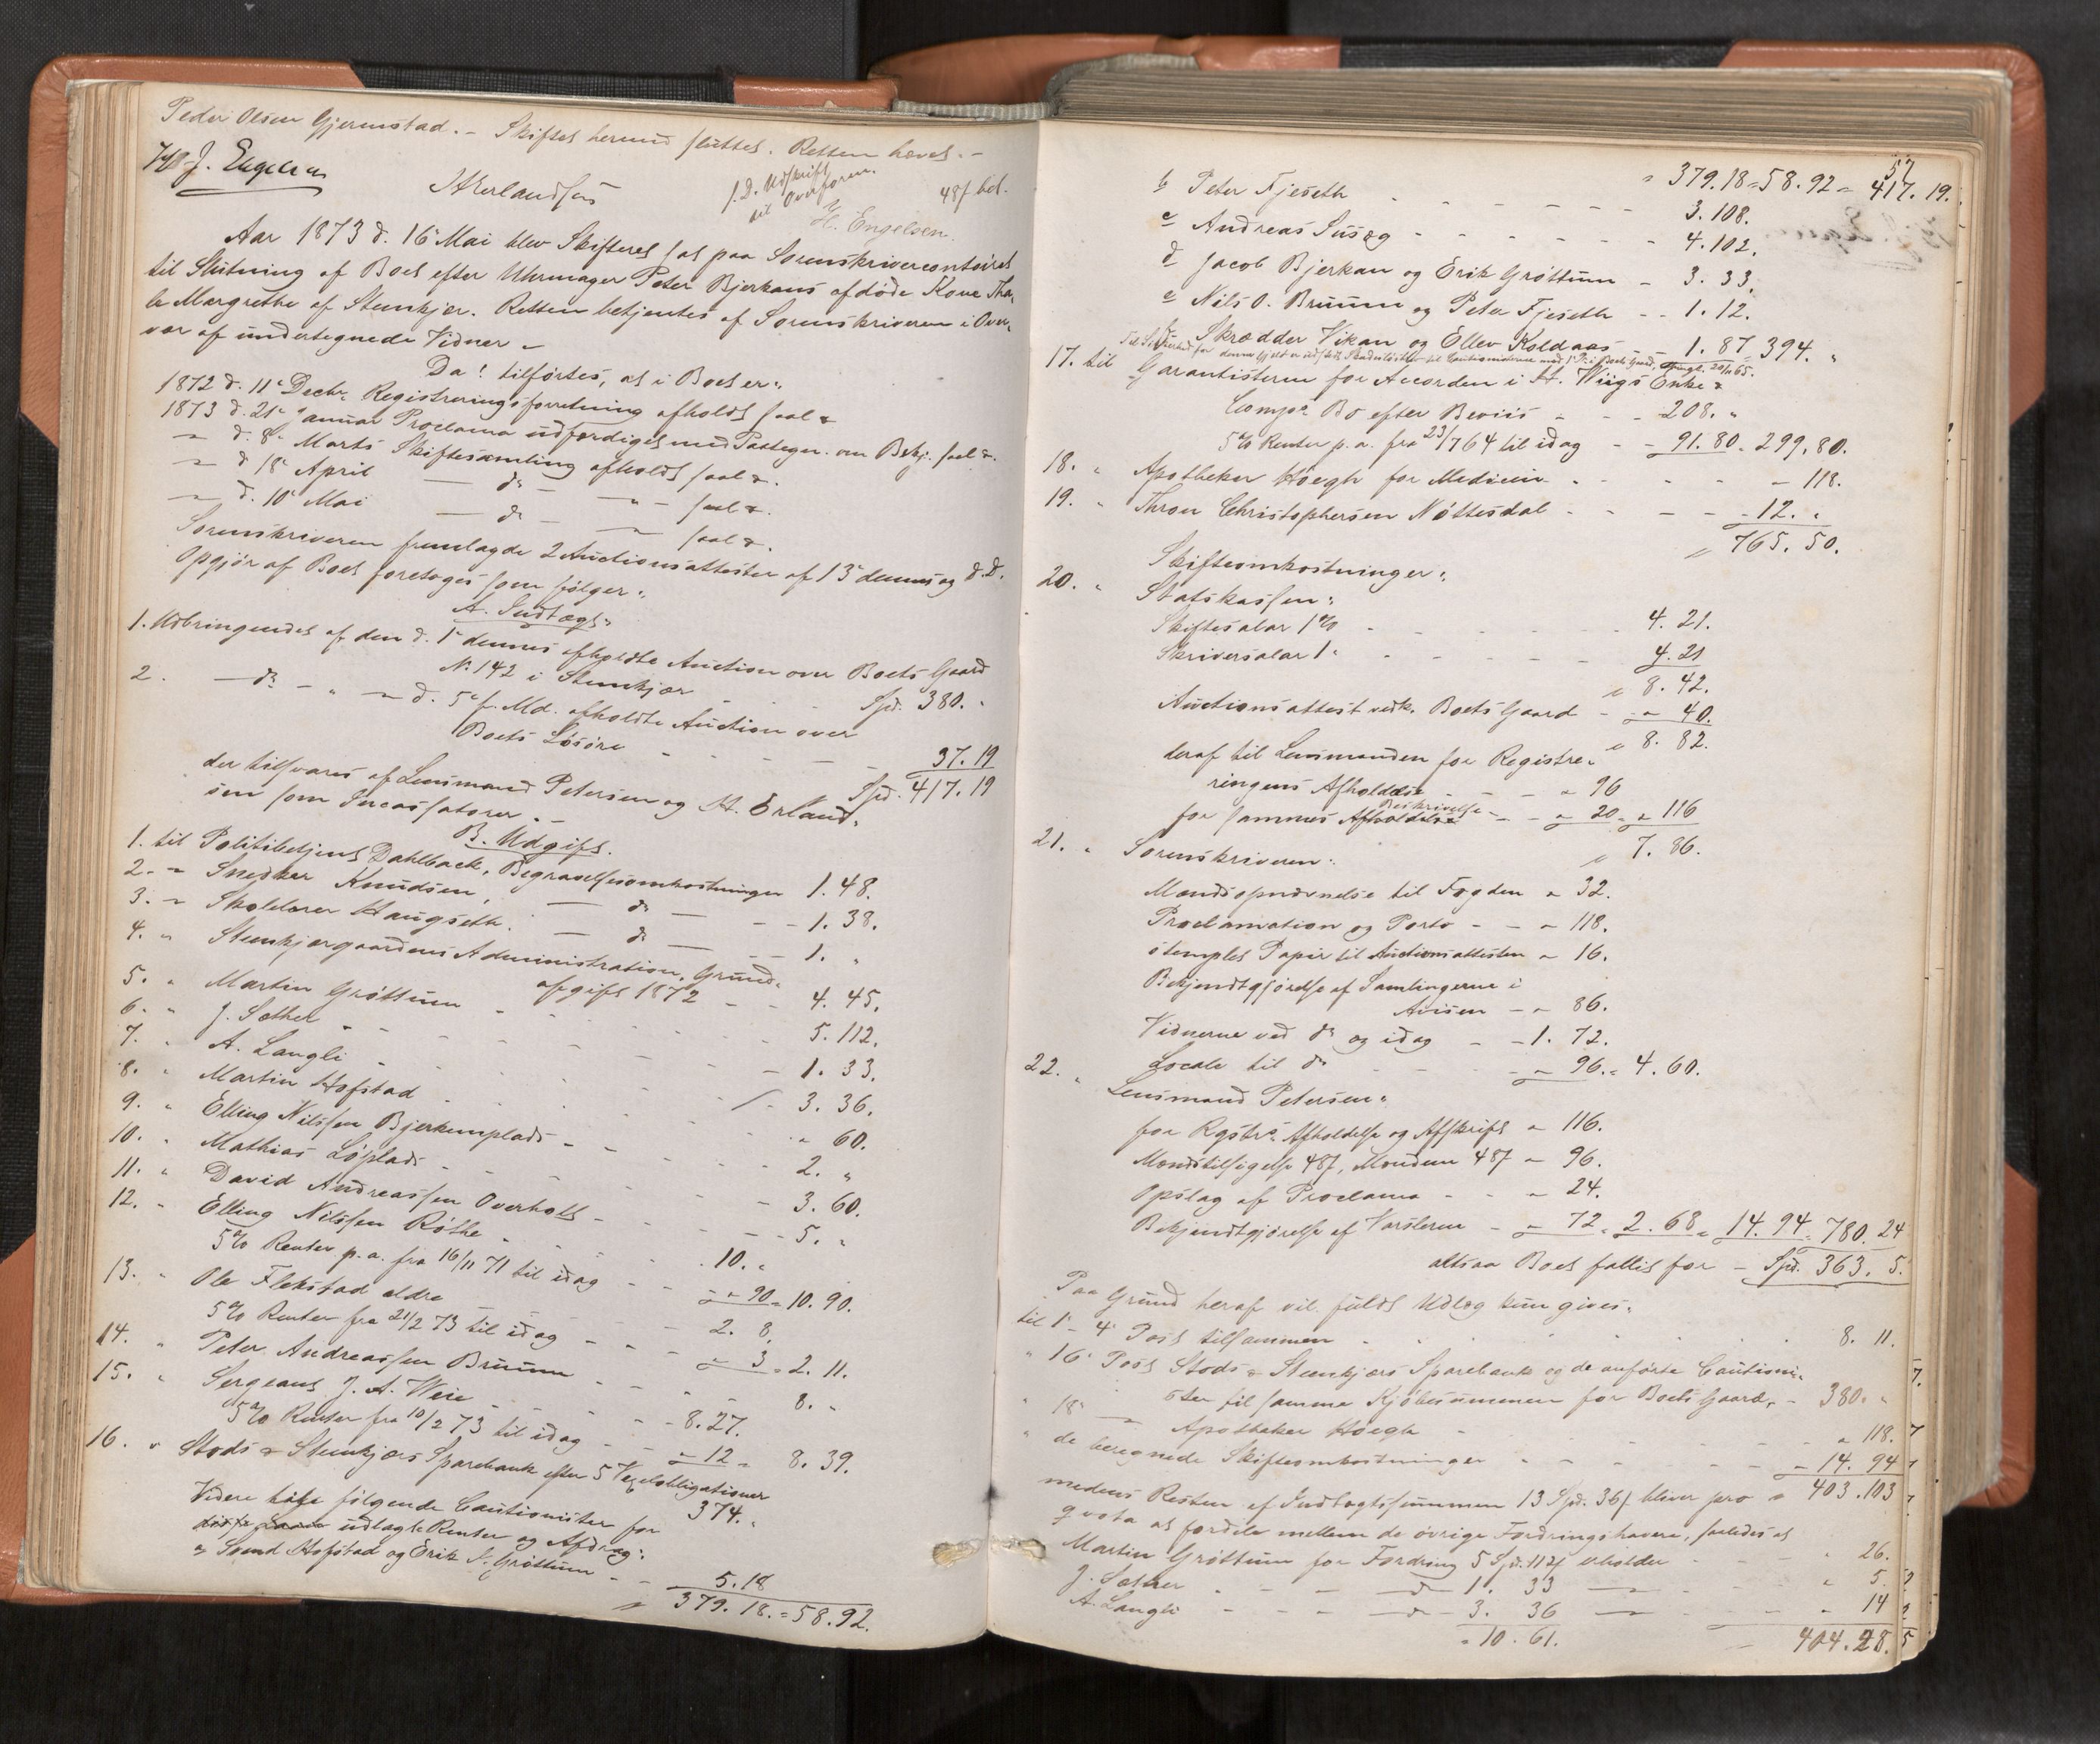 Peder Olsen Gjermstad. – Skiftet hermed sluttet. Retten hævet. –
J. Engelsen
A Erlandsen
f. D. Udskrift
til Overform.
48 ſ bet.
H. Engelsen.
Aar 1873 d. 16 Mai blev Skifteret sat paa Sorenskrivercontoiret
til Slutning af Boet efter Uhrmager Peter Bjerkans afdøde Kone Tha-
le Margrethe af Stenkjær. Retten betjentes af Sorenskriveren i Over-
vær af undertegnede Vidner –
Da! tilførtes, at i Boet er:
1872 d. 11 Decbr. Registreringsforretning afholdt saal &
1873 d. 21 Januar Proclama udfærdiget med Paategn. om Bekj. saal &.
" d. 8 Marts Skiftesamling afholdt saal &.
" d 18 April – do – " – saal &.
" d. 10 Mai – do – " – saal &.
Sorenskriveren fremlagde 2 Auctionsattester af 13 dennes og d. D.
Opgjør af Boet foretoges som følger:
A. Indtægt:
1. Udbringendet af den d. 1 dennes afholdte Auction over Boets Gaard
No 142 i Stenkjær - - Spd. 380. "
2. – do – " – d. 5 f. Md. afholdte Auction over
Boets Løsøre - - - - - 37. 19
Spd. 417. 19
der tilsvares af Lensmand Petersen og A. Erland-
sen som Incassatorer. –
B. Udgift.
1. til Politibetjent Dahlback, Begravelsesomkostninger 1. 48.
2. " Snedker Knudsen, – do – - 1. 38.
3. " Skolelærer Haugseth. – do – - 1. "
4. " Stenkjærgaardens Administration, Grund-
afgift 1872 - - 4. 45.
5. " Martin Grøttum - - - - 5. 112.
6. " J. Sother - - - - 1. 33.
7. " A. Langli - - - - 3. 36.
8. " Martin Hofstad - - - - " 60.
9. " Elling Nilssen Bjerkemplads - - - 2. "
10. " Mathias Løplads - - - - 3. 60.
11. " David Andreassen Overholt - - - 5. "
12. " Elling Nilssen Røthe - - 10. "
5% Renter p. a. fra 16/11 71 til idag - - " 90 = 10. 90.
13. " Ole Flekstad ældre - - 2. 8.
5% Renter fra 21/2 73 til idag - - " 3 = 2. 11.
14. " Peter Andreassen Bruum - - - 8. "
15. " Sergeant J. A. Weie - - 8. 27.
5% Renter fra 10/2 73 til idag - - " 12 = 8. 39.
16. " Stods & Stenkjærs Sparebank efter 5 Vexelobligationer
374. "
Videre have følgende Cautionister for
udlagte Renter og Afdrag:
a Svend Hofstad og Erik N. Grøttum - - 5. 18
" 379. 18. = 58. 92.
57
" 379. 18 = 58. 92 = 417. 19.
b Peter Fjeseth - - - - 3. 108.
c Andreas Susæg - - - - 4. 102.
d Jacob Bjerkan og Erik Grøttum - 3. 33.
e Nils O. Bruum og Peter Fjeseth - - 1. 12.
f Skrædder Vikan og Ellev Koldaas - - 1. 87 = 394. "
17. til Garantisterne for Accorden i A. Wiigs Enke &
Comps Bo efter Beviis - - - 208. "
5% Renter p. a. fra 23/7 64 til idag - - 91. 80 = 299. 80.
18. " Apotheker Høegh for Medicin - - - - " 118.
19. " Thron Christophersen Nøttesdal - - - - 12. "
" 765. 50.
Skifteomkostninger:
20. " Statskassen:
Skiftesalær 1% - - - - 4. 21.
Skriversalær 1 " - - - - 4. 21
" 8. 42.
Auctionsattest vedk. Boets Gaard - " 40.
" 8. 82.
deraf til Lensmanden for Registre-
ringens Afholdelse - - - " 96
Beskrivelse
for sammes Afholdelse - - " 20 = " 116
" 7. 86.
21. " Sorenskriveren:
Mandsopnævnelse til Fogden " 32.
Proclamation og Porto - - " 118.
stemplet Papir til Auctionsattesten " 16.
Bekjendtgjørelse af Samlingerne i
Avisen - " 86.
Vidnerne ved do og idag - - 1. 72.
Locale til do - - - " 96. = 4. 60.
22. " Lensmand Petersen:
for Rgstrs. Afholdelse og Afskrift " 116.
Mændstilsigelse 48 ſ, Mændene 48 ſ " 96.
Opslag af Proclama - - - " 24.
Bekjendtgjørelse af Varslerne - " 72 = 2. 68 = 14. 94 = 780. 24
altsaa Boet fallit for - Spd. 363. 5.
Paa Grund heraf vil fuldt Udlæg kun gives:
til 1 - 4 Post tilsammen - - - - 8. 11.
" 16 Post Stods & Stenkjærs Sparebank og de anførte Cautioni-
ster til samme Kjøbesummen for Boets Gaard, - 380. "
" 18 — Apotheker Høegh - - - - " 118.
" de beregnede Skifteomkostninger - - - - 14. 94
" 403. 103
medens Resten af Indtægtssummen 13 Spd. 36 ſ bliver pro
qvota at fordele mellem de øvrige Fordringshavere, saaledes at
Martin Grøttum for Fordring 5 Spd. 112 ſ erholder - - - " 26.
J. Sother - - - do 1. 33 — - - " 5.
A. Langli - - - do - 3. 36 — - - " 14
" 10. 61. 404. 28.